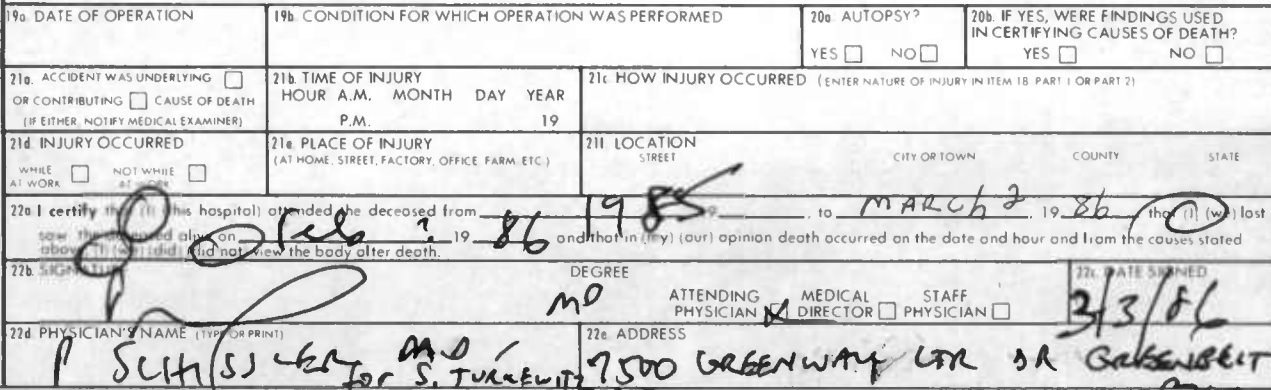 19a. DATE OF OPERATION
19b. CONDITION FOR WHICH OPERATION WAS PERFORMED
20a. AUTOPSY?
YES NO
20b. IF YES, WERE FINDINGS USED
IN CERTIFYING CAUSES OF DEATH?
YES NO
21a. ACCIDENT WAS UNDERLYING
OR CONTRIBUTING CAUSE OF DEATH
(IF EITHER, NOTIFY MEDICAL EXAMINER)
21b. TIME OF INJURY
HOUR A.M. MONTH DAY YEAR
P.M. 19
21c. HOW INJURY OCCURRED (ENTER NATURE OF INJURY IN ITEM 18 PART 1 OR PART 2)
21d. INJURY OCCURRED
WHILE AT WORK NOT WHILE AT WORK
21e. PLACE OF INJURY
(AT HOME, STREET, FACTORY, OFFICE FARM ETC.)
21f. LOCATION
STREET CITY OR TOWN COUNTY STATE
22a. I certify that (I) (this hospital) attended the deceased from 1985 to MARCH 2 1986 that (I) (we) last
saw the deceased alive on Feb ? 1986 and that in (my) (our) opinion death occurred on the date and hour and from the causes stated
above, (I) (we) (did) (did not) view the body after death.
22b. SIGNATURE
DEGREE
MD
ATTENDING PHYSICIAN MEDICAL DIRECTOR STAFF PHYSICIAN
22c. DATE SIGNED
3/3/86
22d. PHYSICIAN'S NAME (TYPE OR PRINT)
P SCHISSLER MD
for S. TURKEWITZ
22e. ADDRESS
7500 GREENWAY CTR DR GREENBELT